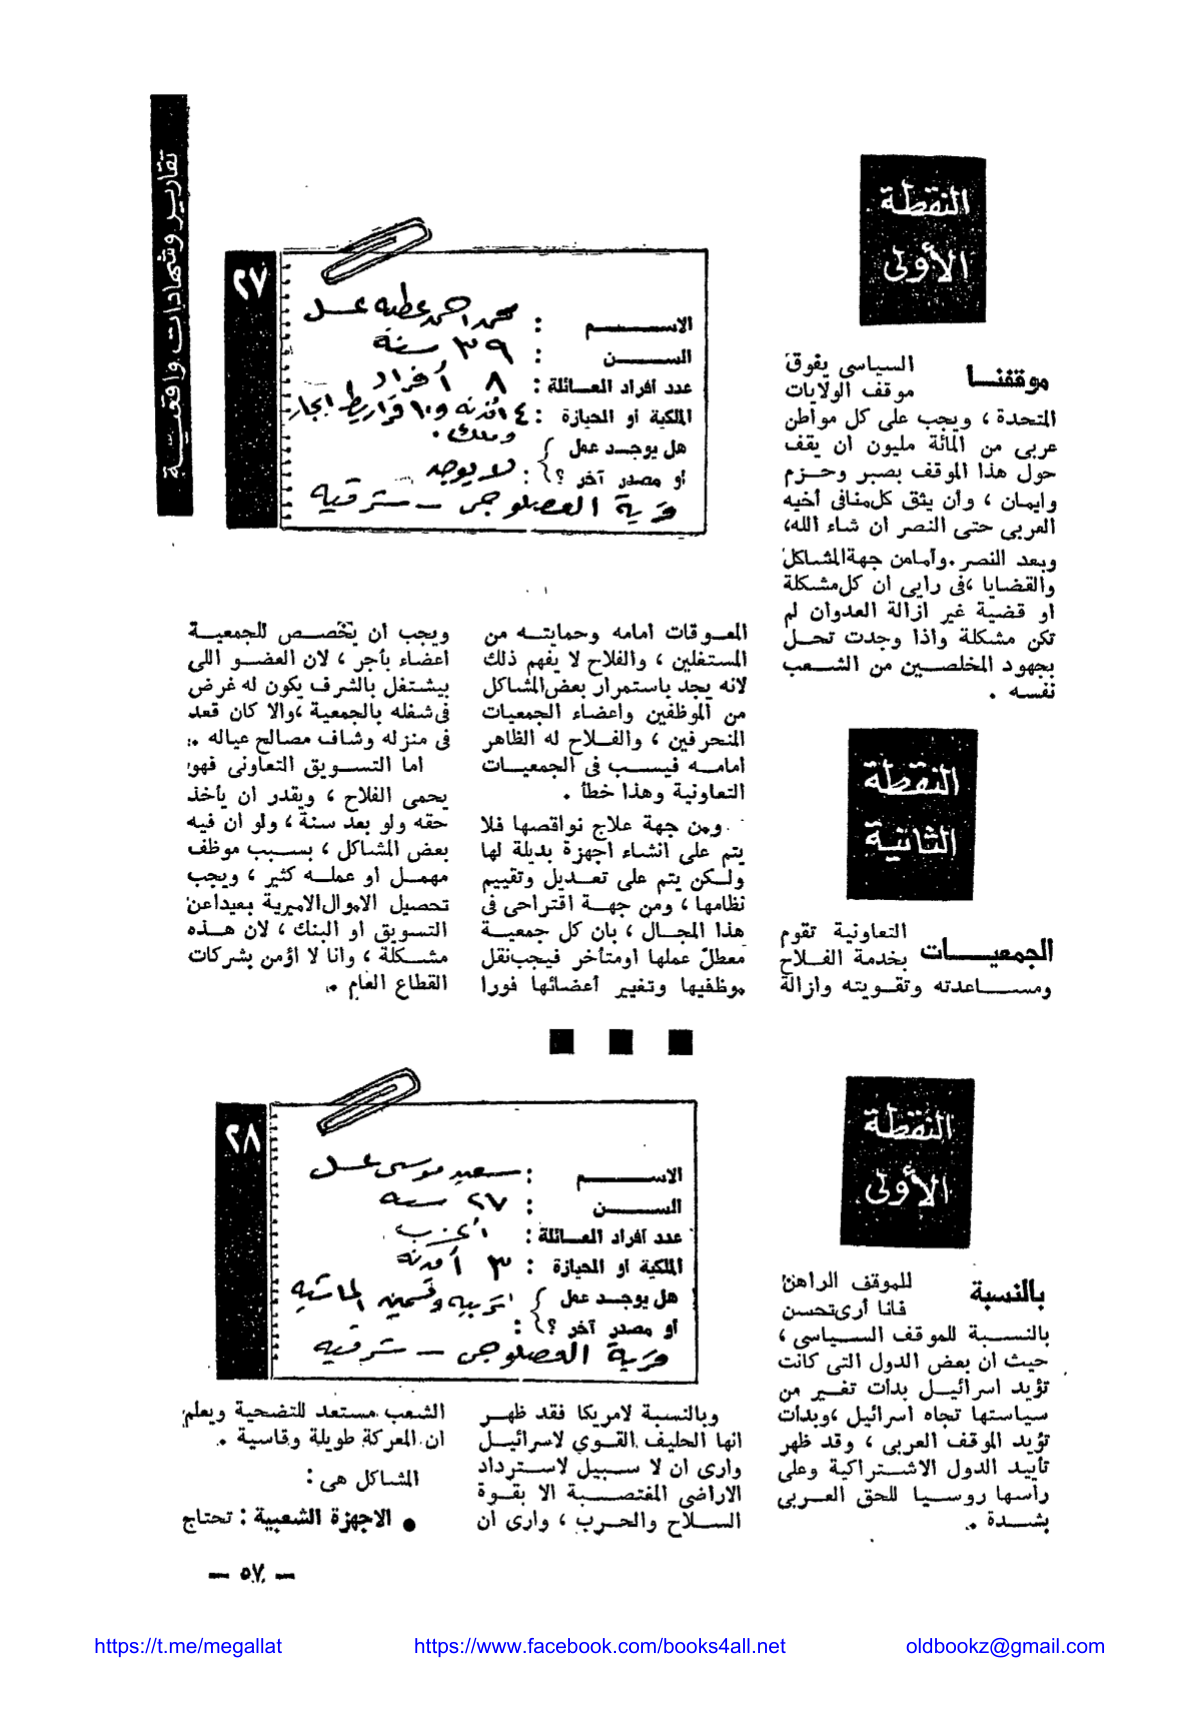 تقارير وشهادات واقعيّة
٢٧
الاســــــم : محمد احمد عطيه عسل
الســــن : ٣٩ سنة
عدد أفراد العــائلة : ٨ أفراد
الملكية أو الحيازة : ٤ أفدنه و١٠ قراريط ايجار
وملك .
هل يوجــد عمل
أو مصدر آخر ؟ : لا يوجد
قرية العصلوجى – شرقيه
النقطة
الأولى
موقفنــا السياسى يفوق
موقف الولايات
المتحدة ، ويجب على كل مواطن
عربى من المائة مليون ان يقف
حول هذا الموقف بصبر وحــزم
وايمان ، وأن يثق كل منا فى أخيه
العربى حتى النصر ان شاء الله،
وبعد النصر . وأما من جهة المشاكل
والقضايا ، فى رايى ان كل مشكلة
او قضية غير ازالة العدوان لم
تكن مشكلة واذا وجدت تحــل
بجهود المخلصــين من الشــعب
نفسه .
النقطة
الثانية
الجمعيـــات التعاونية تقوم
بخدمة الفــلاح
ومســـاعدته وتقــويته وازالة
المعــوقات امامه وحمايتــه من
المستغلين ، والفلاح لا يفهم ذلك
لانه يجد باستمرار بعض المشاكل
من الموظفين واعضاء الجمعيات
المنحرفين ، والفــلاح له الظاهر
امامــه فيســب فى الجمعيــات
التعاونية وهذا خطأ .
ومن جهة علاج نواقصها فلا
يتم على انشاء اجهزة بديلة لها
ولــكن يتم على تعــديل وتقييم
نظامها ، ومن جهــة اقتراحى فى
هذا المجــال ، بان كل جمعيــة
معطل عملها او متأخر فيجب نقل
موظفيها وتغيير أعضائها فورا
ويجب ان يخصــص للجمعيــة
اعضاء بأجر ، لان العضــو اللى
بيشتغل بالشرف يكون له غرض
فى شغله بالجمعية ، والا كان قعد
فى منزله وشاف مصالح عياله .
اما التســويق التعاونى فهو
يحمى الفلاح ، ويقدر ان يأخذ
حقه ولو بعد سنة ، ولو ان فيه
بعض المشاكل ، بســبب موظف
مهمــل او عملــه كثير ، ويجب
تحصيل الاموال الاميرية بعيدا عن
التسويق او البنك ، لان هــذه
مشــكلة ، وانا لا اؤمن بشركات
القطاع العام .
٢٨
الاســــــم : سعيد موسى عسل
الســــن : ٢٧ سنه
عدد أفراد العــائلة : أعزب
الملكية أو الحيازة : ٣ أفدنه
هل يوجــد عمل تربيه وتسمين الماشيه
أو مصدر آخر ؟ :
قرية العصلوجى – شرقيه
النقطة
الأولى
بالنسبة للموقف الراهن
فانا أرى تحسن
بالنســبة للموقف الســياسى ،
حيث ان بعض الدول التى كانت
تؤيد اسرائيــل بدات تغــير من
سياستها تجاه اسرائيل ، وبدات
تؤيد الموقف العربى ، وقد ظهر
تأييد الدول الاشــتراكية وعلى
رأسها روســيا للحق العــربى
بشــدة .
وبالنسبة لامريكا فقد ظهــر
انها الحليف القــوى لاسرائيــل
وارى ان لا سبيل لاســترداد
الاراضى المغتصــبة الا بقــوة
الســلاح والحــرب ، وارى ان
الشعب مستعد للتضحية ويعلم
ان المعركة طويلة وقاسية .
المشاكل هى :
● الاجهزة الشعبية : تحتاج
— ٥٧ —
https://t.me/megallat
https://www.facebook.com/books4all.net
oldbookz@gmail.com